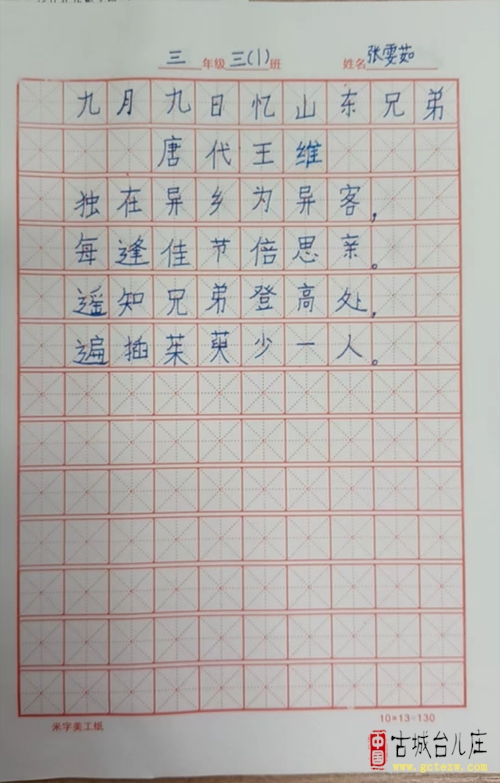 三年级三(1)班 姓名张雯茹
九月九日忆山东兄弟
唐代王维
独在异乡为异客，
每逢佳节倍思亲。
遥知兄弟登高处，
遍插茱萸少一人。
米字美工纸 10×13=130
中国 古城台儿庄
www.gctezw.com